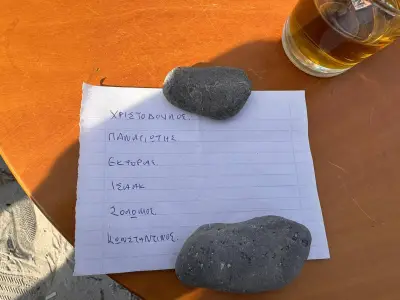 ΧΡΙΣΤΟΔΟΥΛΟΣ.
ΠΑΝΑΓΙΩΤΗΣ
ΕΚΤΟΡΑΣ
ΙΣΑΑΚ
ΣΟΛΩΜΟΣ
ΚΩΝΣΤΑΝΤΙΝΟΣ.